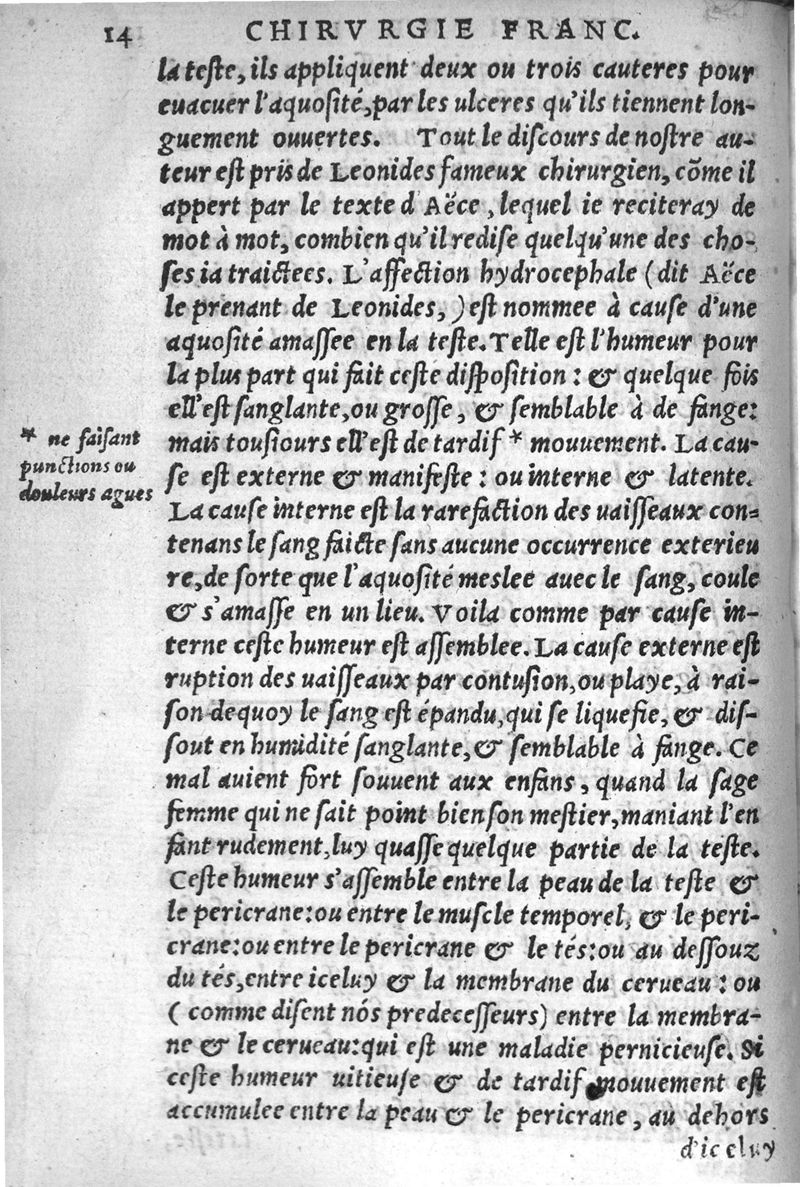 14 CHIRVRGIE FRANC.
la teſte, ils appliquent deux ou trois cauteres pour
euacuer l'aquoſité, par les ulceres qu'ils tiennent lon-
guement ouuertes. Tout le diſcours de noſtre au-
teur eſt pris de Leonides fameux chirurgien, cõme il
appert par le texte d'Aëce, lequel ie reciteray de
mot à mot, combien qu'il rediſe quelqu'une des cho-
ſes ia traictees. L'affection hydrocephale (dit Aëce
le prenant de Leonides,) eſt nommee à cauſe d'une
aquoſité amaſſee en la teſte. Telle eſt l'humeur pour
la plus part qui fait ceſte diſpoſition: & quelque fois
ell'eſt ſanglante, ou groſſe, & ſemblable à de fange:
mais touſiours ell'eſt de tardif * mouuement. La cau-
* ne faiſant
punctions ou
douleurs agues
ſe eſt externe & manifeſte: ou interne & latente.
La cauſe interne eſt la rarefaction des uaiſſeaux con-
tenans le ſang faicte ſans aucune occurrence exterieu
re, de ſorte que l'aquoſité meslee auec le ſang, coule
& s'amaſſe en un lieu. Voila comme par cauſe in-
terne ceſte humeur eſt aſſemblee. La cauſe externe eſt
ruption des uaiſſeaux par contuſion, ou playe, à rai-
ſon dequoy le ſang eſt épandu, qui ſe liquefie, & diſ-
ſout en humidité ſanglante, & ſemblable à fange. Ce
mal auient fort ſouuent aux enfans, quand la ſage
femme qui ne ſait point bien ſon meſtier, maniant l'en
fant rudement, luy quaſſe quelque partie de la teſte.
Ceſte humeur s'aſſemble entre la peau de la teſte &
le pericrane: ou entre le muſcle temporel, & le peri-
crane: ou entre le pericrane & le tés: ou au deſſouz
du tés, entre iceluy & la membrane du cerueau: ou
(comme diſent nós predeceſſeurs) entre la membra-
ne & le cerueau: qui eſt une maladie pernicieuſe. Si
ceſte humeur uitieuſe & de tardif mouuement eſt
accumulee entre la peau & le pericrane, au dehors
d'iceluy